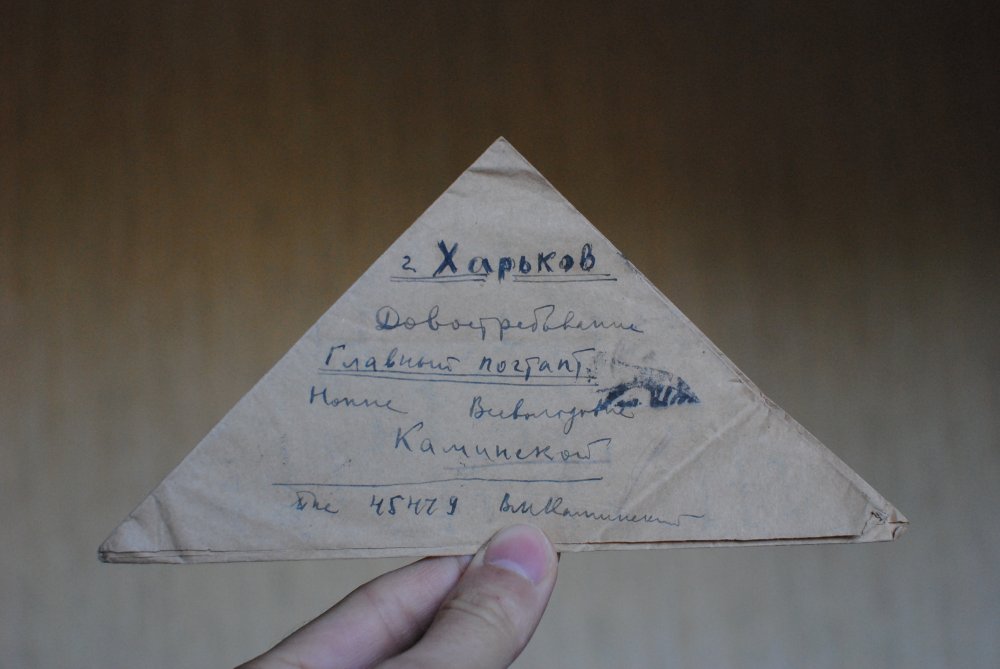 г Харьков
Довостребывание
Главный почтамт.
Нонне Всеволодовне
Каминской
45479 ВМКаминский